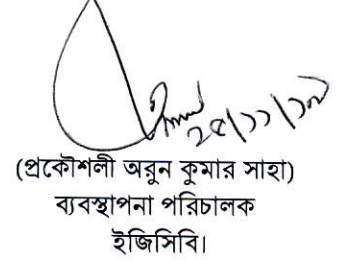 ২৫/১১/১৯
(প্রকৌশলী অরুন কুমার সাহা)
ব্যবস্থাপনা পরিচালক
ইজিসিবি।